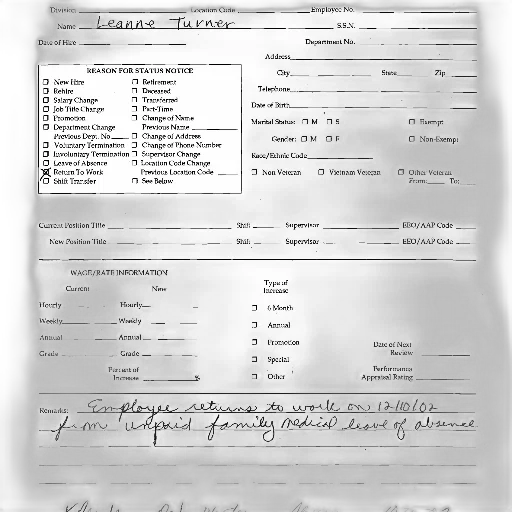 Division Location Code Employee No.
Name Leanne Turner S.S.N.
Date of Hire Department No.
Address
City State Zip
Telephone
Date of Birth
Marital Status: ☐ M ☐ S ☐ Exempt
Gender: ☐ M ☐ F ☐ Non-Exempt
Race/Ethnic Code
☐ Non Veteran ☐ Vietnam Veteran ☐ Other Veteran
From: To:
REASON FOR STATUS NOTICE
☐ New Hire ☐ Retirement
☐ Rehire ☐ Deceased
☐ Salary Change ☐ Transferred
☐ Job Title Change ☐ Part-Time
☐ Promotion ☐ Change of Name
☐ Department Change Previous Name
Previous Dept. No. ☐ Change of Address
☐ Voluntary Termination ☐ Change of Phone Number
☐ Involuntary Termination ☐ Supervisor Change
☐ Leave of Absence ☐ Location Code Change
☒ Return To Work Previous Location Code
☐ Shift Transfer ☐ See Below
Current Position Title Shift Supervisor EEO/AAP Code
New Position Title Shift Supervisor EEO/AAP Code
WAGE/RATE INFORMATION
Current New
Hourly Hourly
Weekly Weekly
Annual Annual
Grade Grade
Percent of
Increase %
Type of
Increase
☐ 6 Month
☐ Annual
☐ Promotion
☐ Special
☐ Other
Date of Next
Review
Performance
Appraisal Rating
Remarks: Employee returns to work on 12/10/02
from unpaid family medical leave of absence